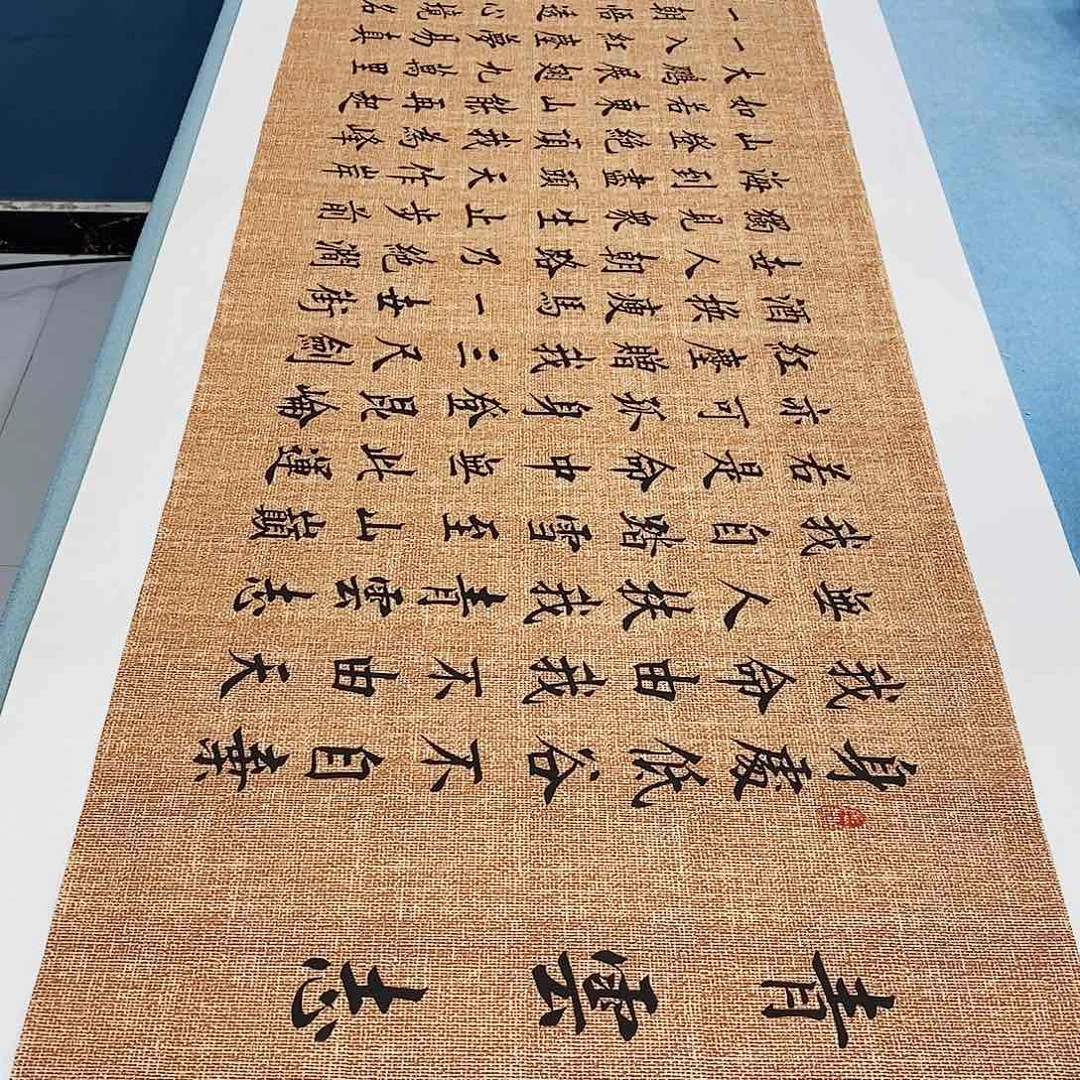 青雲志
身處低谷不自棄
我命由我不由天
無人扶我青雲志
我自踏雪至山巔
若是命中無此運
亦可孤身登昆崙
紅塵贈我三尺劍
酒換瘦馬一世街
世人朝路乃絕澗
獨見眾生止步前
海到盡頭天作岸
山登絕頂我為峰
如若東山能再起
大鵬展翅九萬里
一入紅塵夢易真
一朝悟透心境名